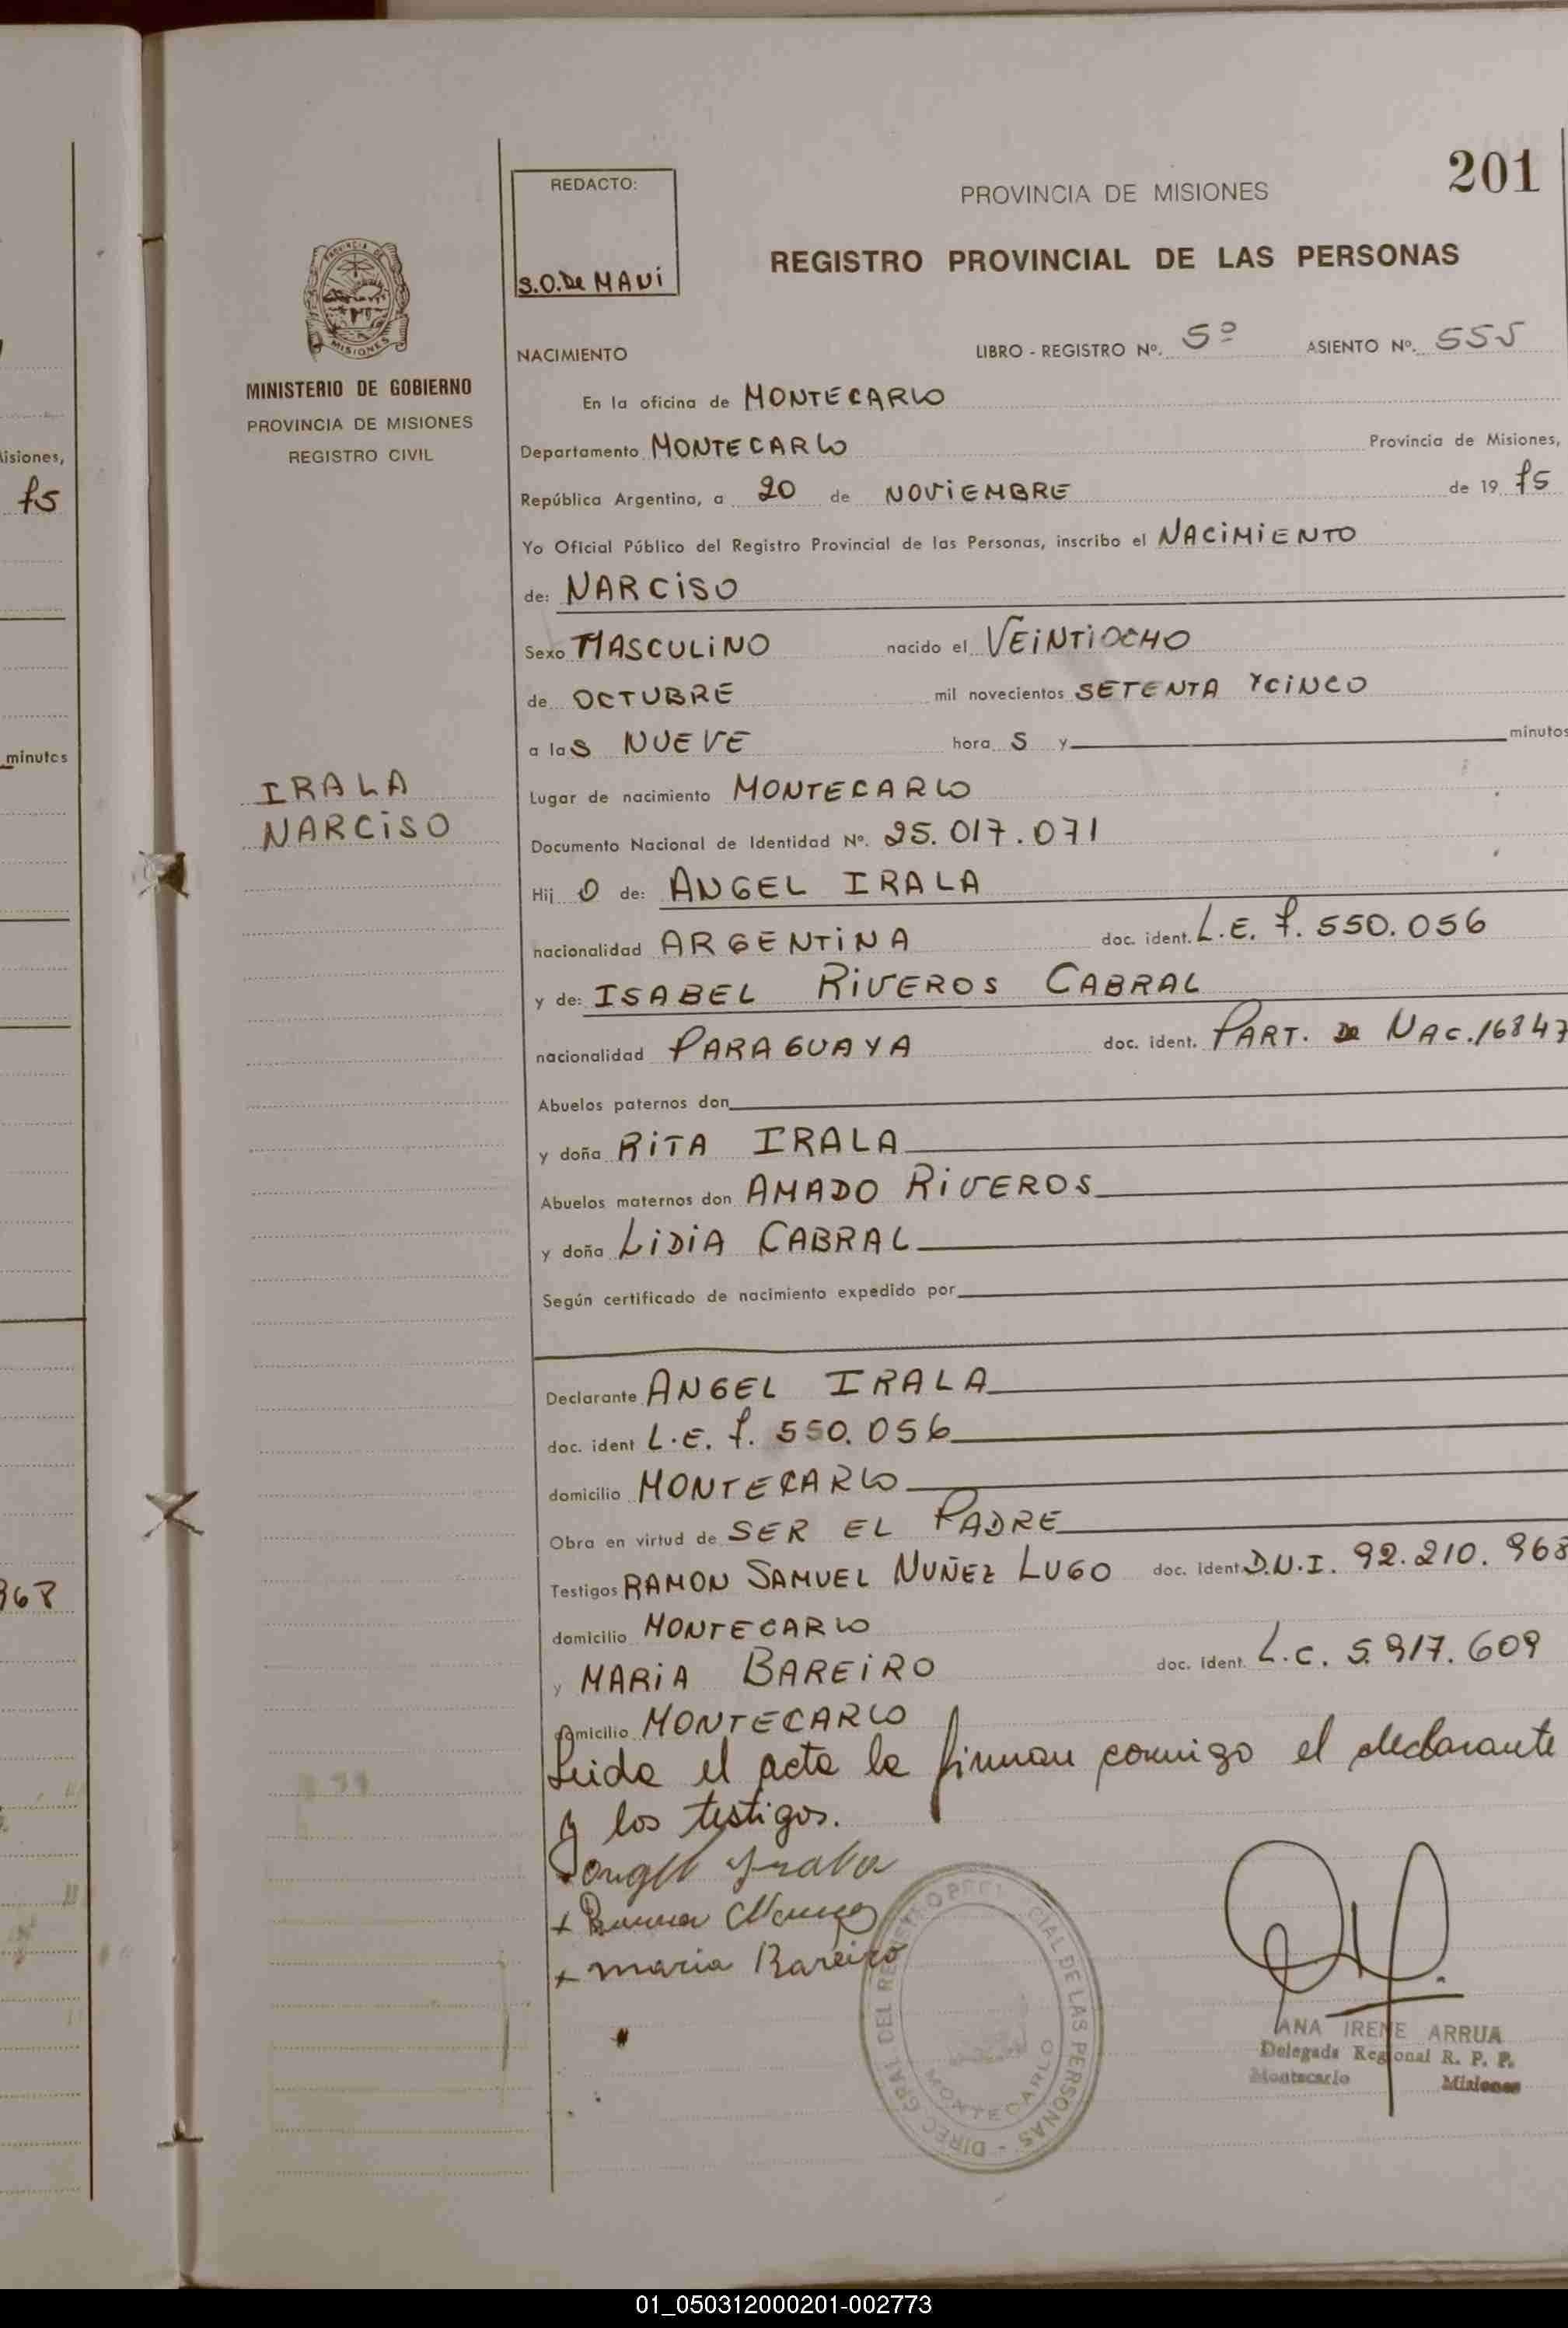 201
REDACTO:
S.O. De MAUi
PROVINCIA DE MISIONES
REGISTRO PROVINCIAL DE LAS PERSONAS
MINISTERIO DE GOBIERNO
PROVINCIA DE MISIONES
REGISTRO CIVIL
NACIMIENTO LIBRO - REGISTRO Nº. 5º ASIENTO Nº. 555
En la oficina de MONTECARLO
Departamento MONTECARLO Provincia de Misiones,
República Argentina, a 20 de NOViEMBRE de 19 75
Yo Oficial Público del Registro Provincial de las Personas, inscribo el NACiMiENTO
de: NARCiSO
Sexo MASCULiNO nacido el VEiNTiOCHO
de OCTUBRE mil novecientos SETENTA YCiNCO
a las NUEVE hora S y minutos
IRALA
NARCiSO
Lugar de nacimiento MONTECARLO
Documento Nacional de Identidad Nº. 25.017.071
Hij O de: ANGEL IRALA
nacionalidad ARGENTiNA doc. ident. L.E. 7.550.056
y de: ISABEL RiVEROS CABRAL
nacionalidad PARAGUAYA doc. ident. PART. De NAC. 16847
Abuelos paternos don
y doña RiTA IRALA
Abuelos maternos don AMADO RiVEROS
y doña LiDiA CABRAL
Según certificado de nacimiento expedido por
Declarante ANGEL IRALA
doc. ident L.E. 7.550.056
domicilio MONTECARLO
Obra en virtud de SER EL PADRE
Testigos RAMON SAMUEL NUÑEZ LUGO doc. ident. D.N.I. 92.210.968
domicilio MONTECARLO
y MARiA BAREiRO doc. ident. L.C. 5.917.609
domicilio MONTECARLO
Leida el acta la firman conmigo el declarante
y los testigos.
Angel Irala
+ maria Bareiro
DIREC. GRAL DEL REGISTRO PROVINCIAL DE LAS PERSONAS -
MONTECARLO
ANA IRENE ARRUA
Delegada Regional R. P. P.
Montecarlo Misiones
isiones,
75
minutos
968
01_050312000201-002773